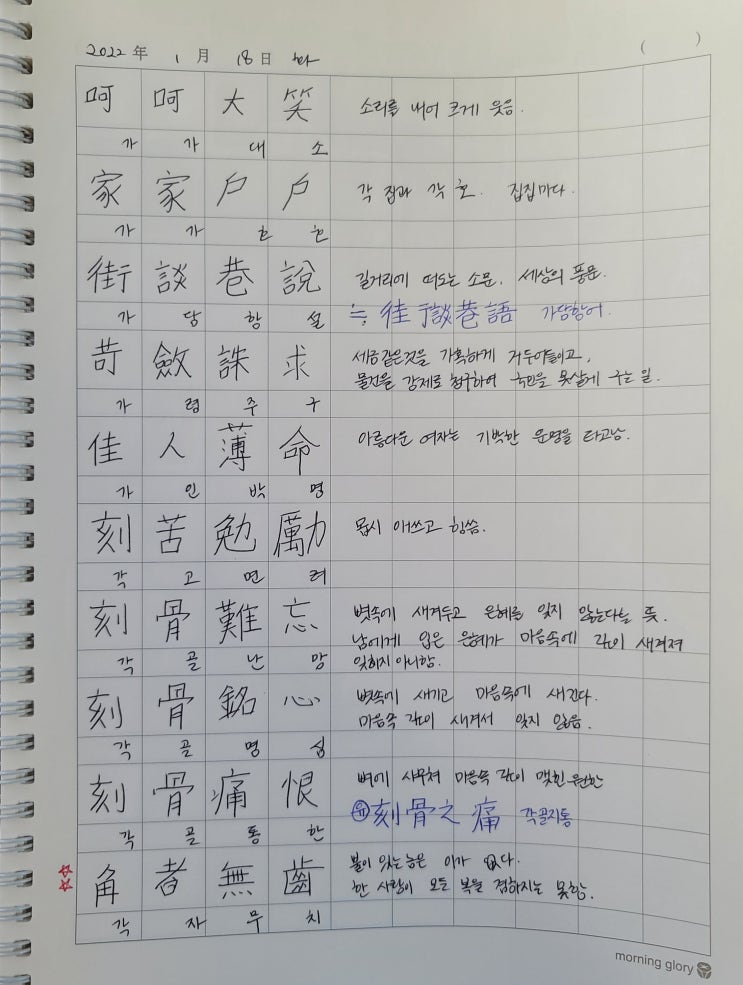 2022 年 1 月 18 日 화 ( )
呵 呵 大 笑 소리를 내어 크게 웃음.
가 가 대 소
家 家 戶 戶 각 집과 각 호. 집집마다.
가 가 호 호
街 談 巷 說 길거리에 떠도는 소문. 세상의 풍문.
가 담 항 설 ≒ 街談巷語 가담항어.
苛 斂 誅 求 세금같은것을 가혹하게 거두어들이고,
물건을 강제로 청구하여 국민을 못살게 구는 일.
가 렴 주 구
佳 人 薄 命 아름다운 여자는 기박한 운명을 타고남.
가 인 박 명
刻 苦 勉 勵 몹시 애쓰고 힘씀.
각 고 면 려
刻 骨 難 忘 뼛속에 새겨두고 은혜를 잊지 않는다는 뜻.
남에게 입은 은혜가 마음속에 깊이 새겨져
각 골 난 망 잊히지 아니함.
刻 骨 銘 心 뼛속에 새기고 마음속에 새긴다.
마음속 깊이 새겨서 잊지 않음.
각 골 명 심
刻 骨 痛 恨 뼈에 사무쳐 마음속 깊이 맺힌 원한
유 刻骨之痛 각골지통
각 골 통 한
角 者 無 齒 뿔이 있는 놈은 이가 없다.
한 사람이 모든 복을 겸하지는 못함.
각 자 무 치
morning glory